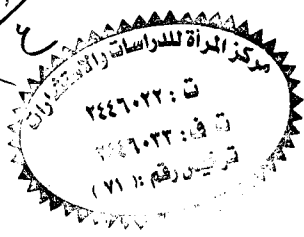 ع
مركز المرأة للدراسات والاستشارات
ت : ٢٤٤٦٠٢٢
ت ف : ٢٤٤٦٠٣٣
ترخيص رقم : ( ٧١ )